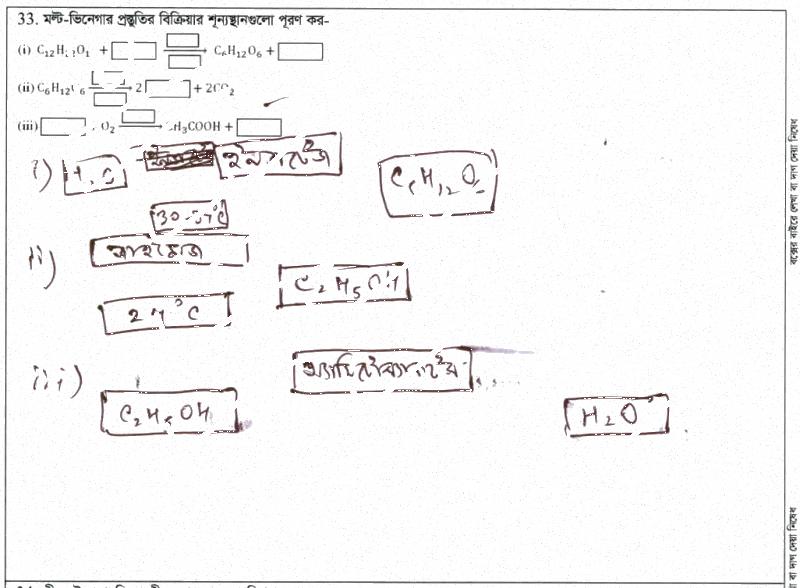 33. মল্ট-ভিনেগার প্রস্তুতির বিক্রিয়ার শূন্যস্থানগুলো পূরণ কর-
(i) C₁₂H₂₂O₁ + → C₆H₁₂O₆ +
(ii) C₆H₁₂ ₆ → 2 + 2CO₂
(iii) O₂ → CH₃COOH +
i) H₂O ইনভার্টেজ C₆H₁₂O₆
30-37°C
ii) জাইমেজ
C₂H₅OH
27°C
iii)
C₂H₅OH H₂O
বক্সের বাইরে লেখা বা দাগ দেয়া নিষেধ
বা দাগ দেয়া নিষেধ